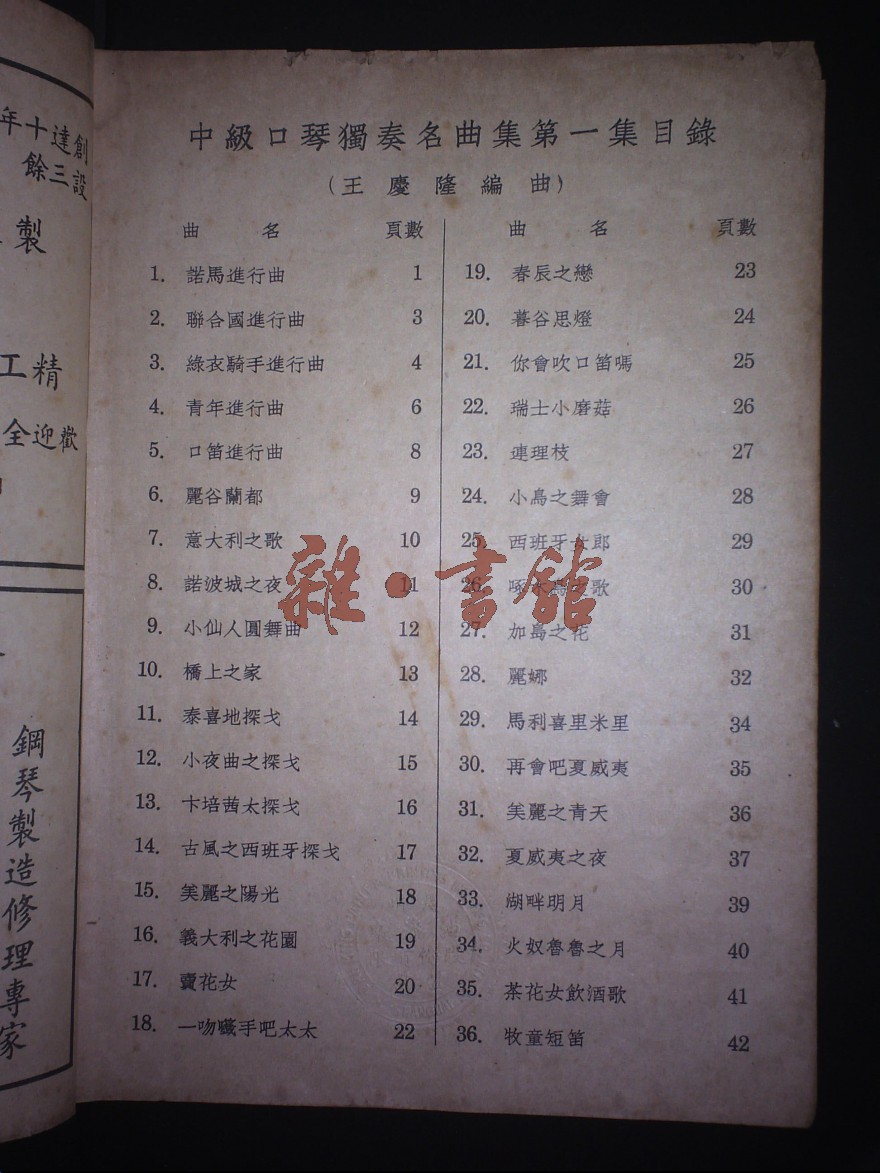 中級口琴獨奏名曲集第一集目錄
（王慶隆編曲）
曲 名 頁數
1. 諾馬進行曲 1
2. 聯合國進行曲 3
3. 綠衣騎手進行曲 4
4. 青年進行曲 6
5. 口笛進行曲 8
6. 麗谷蘭都 9
7. 意大利之歌 10
8. 諾波城之夜 11
9. 小仙人圓舞曲 12
10. 橋上之家 13
11. 泰喜地探戈 14
12. 小夜曲之探戈 15
13. 卞培茜太探戈 16
14. 古風之西班牙探戈 17
15. 美麗之陽光 18
16. 義大利之花園 19
17. 賣花女 20
18. 一吻職手吧太太 22
曲 名 頁數
19. 春辰之戀 23
20. 暮谷思燈 24
21. 你會吹口笛嗎 25
22. 瑞士小磨菇 26
23. 連理枝 27
24. 小鳥之舞會 28
25. 西班牙女郎 29
26. 啄木鳥之歌 30
27. 加島之花 31
28. 麗娜 32
29. 馬利喜里米里 34
30. 再會吧夏威夷 35
31. 美麗之青天 36
32. 夏威夷之夜 37
33. 湖畔明月 39
34. 火奴魯魯之月 40
35. 茶花女飲酒歌 41
36. 牧童短笛 42
雜·書館
創設
達三
十餘
年
製
工精
全迎歡
鋼琴製造修理專家